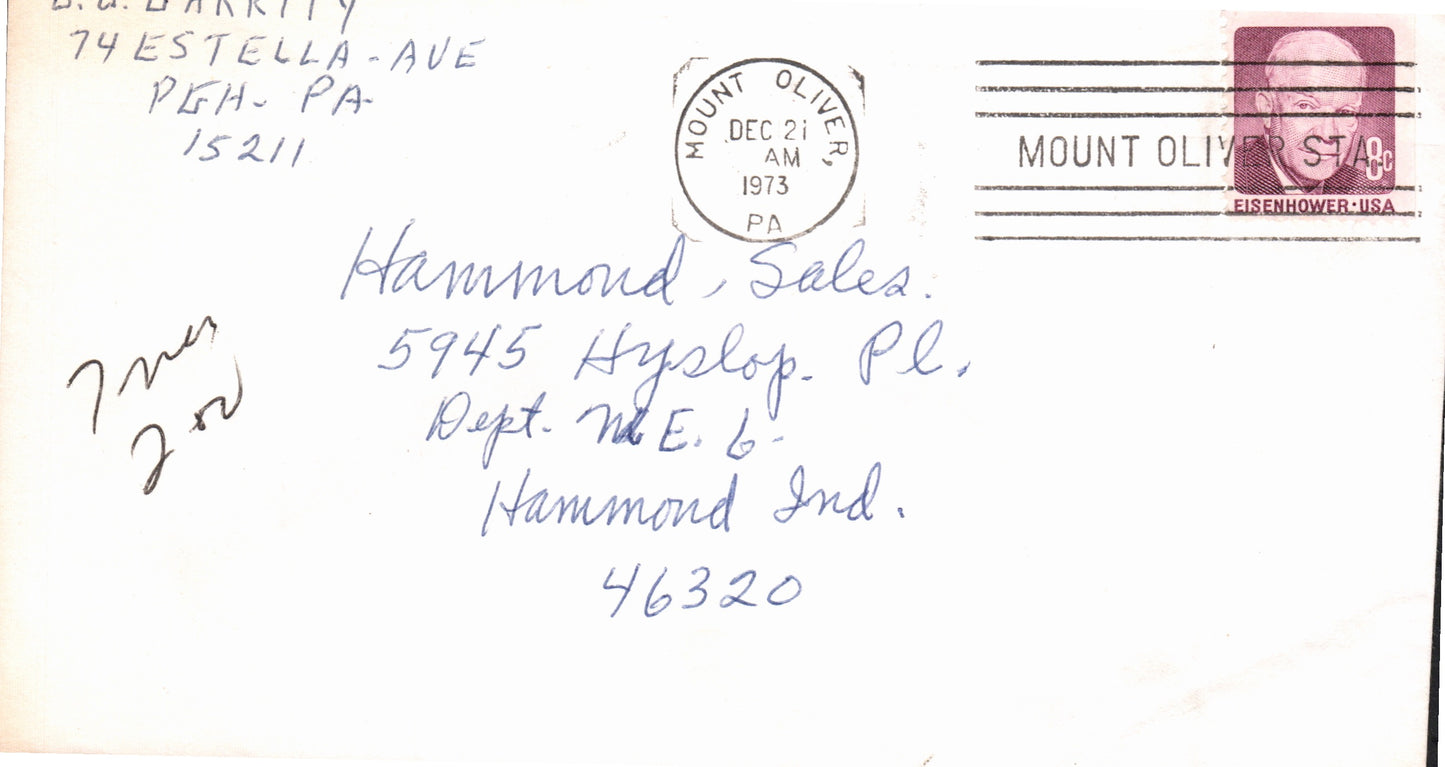 GARRITY
74 ESTELLA-AVE
PGH- PA-
15211
MOUNT OLIVER,
DEC 21
AM
1973
PA
MOUNT OLIVER STA.
8c
EISENHOWER·USA
Hammond, Sales.
5945 Hyslop. Pl.
Dept. M.E. 6-
Hammond Ind.
46320